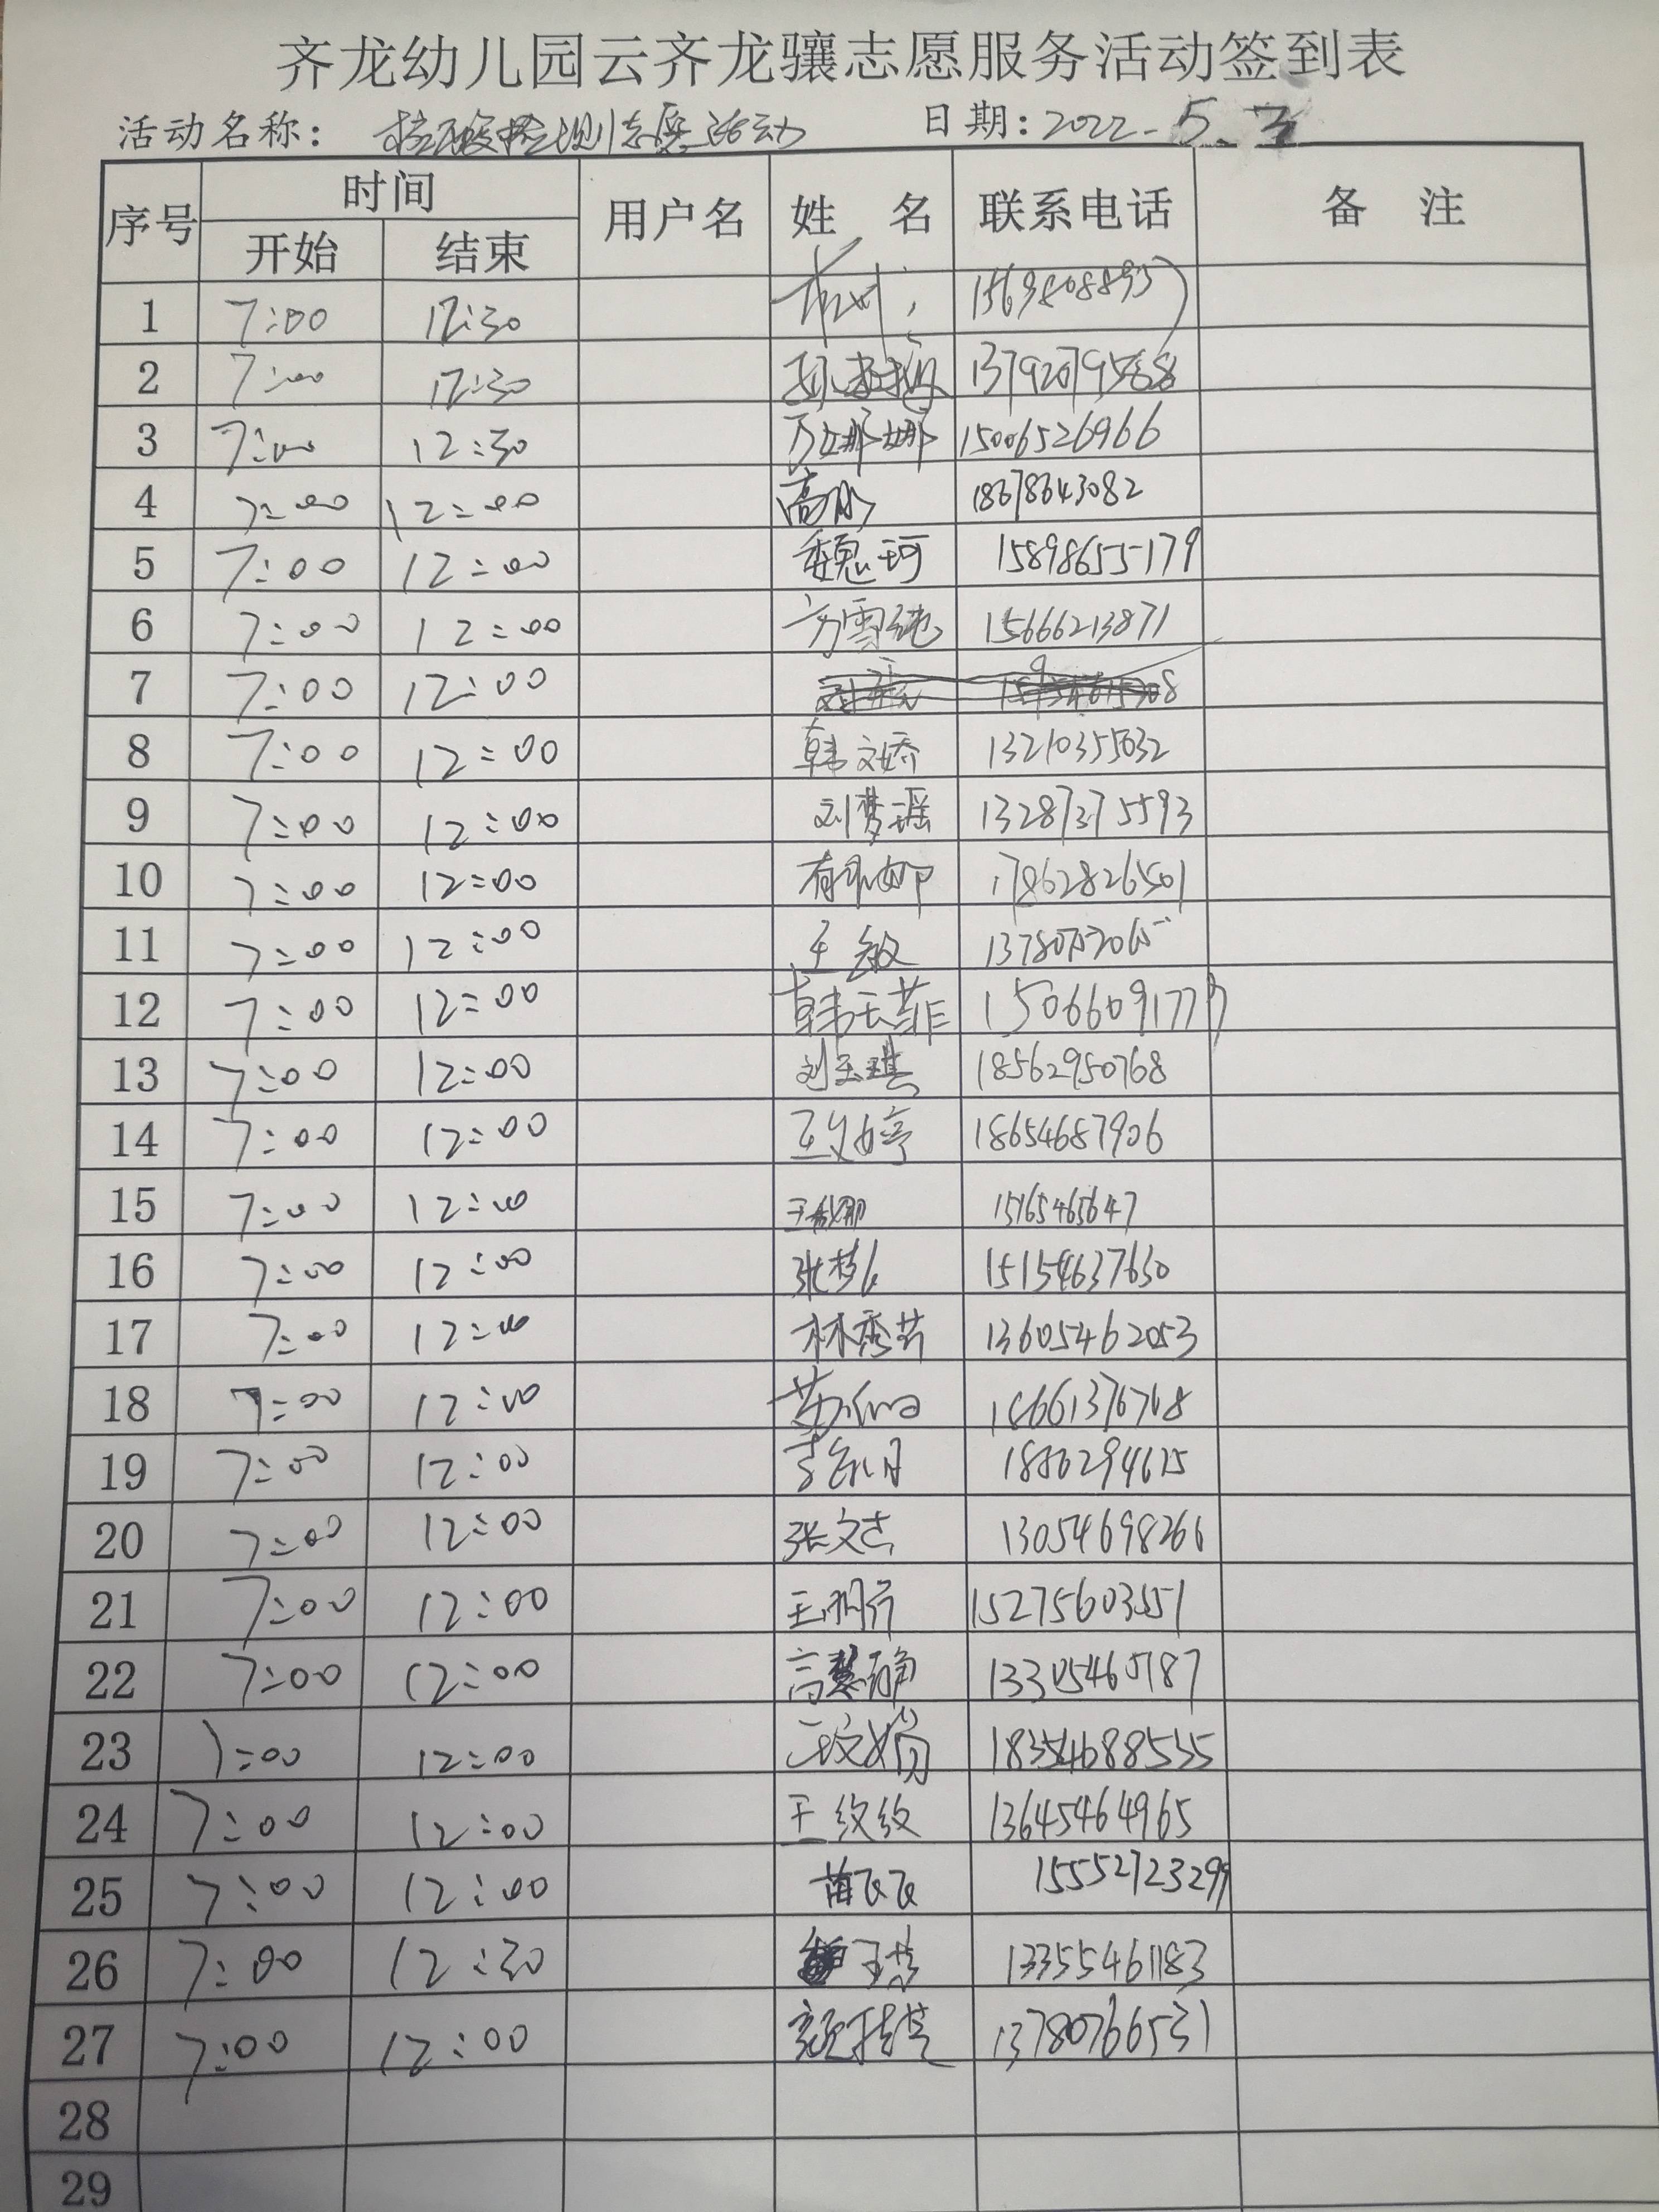 齐龙幼儿园云齐龙骧志愿服务活动签到表
活动名称: 核酸检测志愿活动 日期: 2022.5.3
序号 时间 用户名 姓 名 联系电话 备 注
开始 结束
1 7:00 12:30
2 7:00 12:30
3 7:00 12:30 万娜娜 15006526966
4 7:00 12:00 高 18678643082
5 7:00 12:00 魏珂 15898655179
6 7:00 12:00 方雪纯 15666213871
7 7:00 12:00
8 7:00 12:00 韩文娇 13210355032
9 7:00 12:00 刘梦瑶 13287375593
10 7:00 12:00 17862826501
11 7:00 12:00 王敏
12 7:00 12:00 韩天菲 15066091777
13 7:00 12:00 刘玉琪 18562950768
14 7:00 12:00 王文婷 18654687906
15 7:00 12:00
16 7:00 12:00 15154637630
17 7:00 12:00 林秀芹 13605462053
18 7:00 12:00
19 7:00 12:00
20 7:00 12:00 张文杰 13054698266
21 7:00 12:00 15275603551
22 7:00 12:00 高慧静 13305460187
23 7:00 12:00 王文娟 18354688535
24 7:00 12:00 王纹纹 13645464965
25 7:00 12:00 苗飞飞 15552723299
26 7:00 12:30 13355461183
27 7:00 12:00 13780766531
28
29